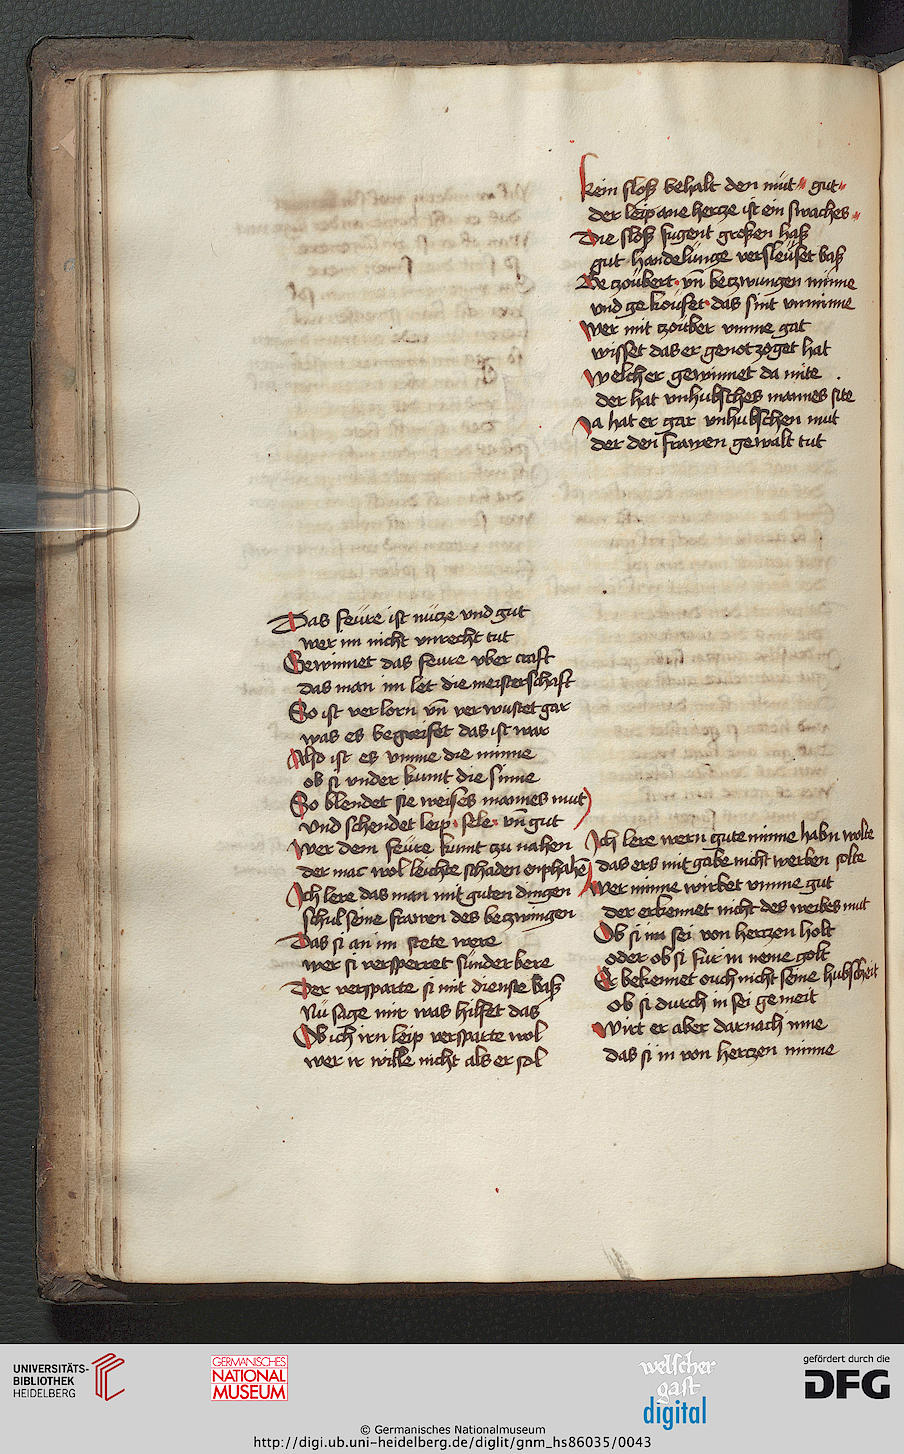 Das feüre ist nücze vnd gut
wer im nicht vnrecht tut
Gewinnet das feure vber craft
das man im let die meisterschaft
So ist verlorn vn̄ verwustet gar
was es begreifet das ist war
Also ist es vmme die minne
ob si vnder kumt die sinne
So blendet sie weises mannes mut
vnd schendet leip · sele · vn̄ gut
wer dem feüre kumt czu nahen
der mac wol leichte schaden enphahē
Ich lere das man mit guten dingen
schul seine frawen des beczwingen
Das si an im stete were
wer si versperret sünderbere
Der versparte si mit dienste baß
Nü sage mir was hilfet das
Ob ich irn leip versparte wol
wer ir wille nicht als er sol
kein sloß behalt den müt gut
der leip ane hercze ist ein swaches
Die sloß fugent großen haß
gut handelünge versleüset baß
Be czoübert · vn̄ beczwungen minne
vnd gekoüfet · das sint vnminne
wer mit czoüber vmme gat
wisset das er genotzoget hat
welcher gewinnet da mite
der hat vnhubsches mannes site
Ja hat er gar vnhubschen mut
der den frawen gewalt tut
Ich lere wern gute minne habn wolte
das ers mit gabe nicht werben solte
wer minne wirbet vmme gut
der erkennet nicht des weibes mut
Ob si im sei von herczen holt
oder ob si fur in neme golt
Er bekennet ouch nicht seine hubscheit
ob si durch in sei gemeit
Wirt er aber darnach inne
das si in von herczen minne
UNIVERSITÄTS-
BIBLIOTHEK
HEIDELBERG
GERMANISCHES
NATIONAL
MUSEUM
welscher
gast
digital
gefördert durch die
DFG
© Germanisches Nationalmuseum
http://digi.ub.uni-heidelberg.de/diglit/gnm_hs86035/0043